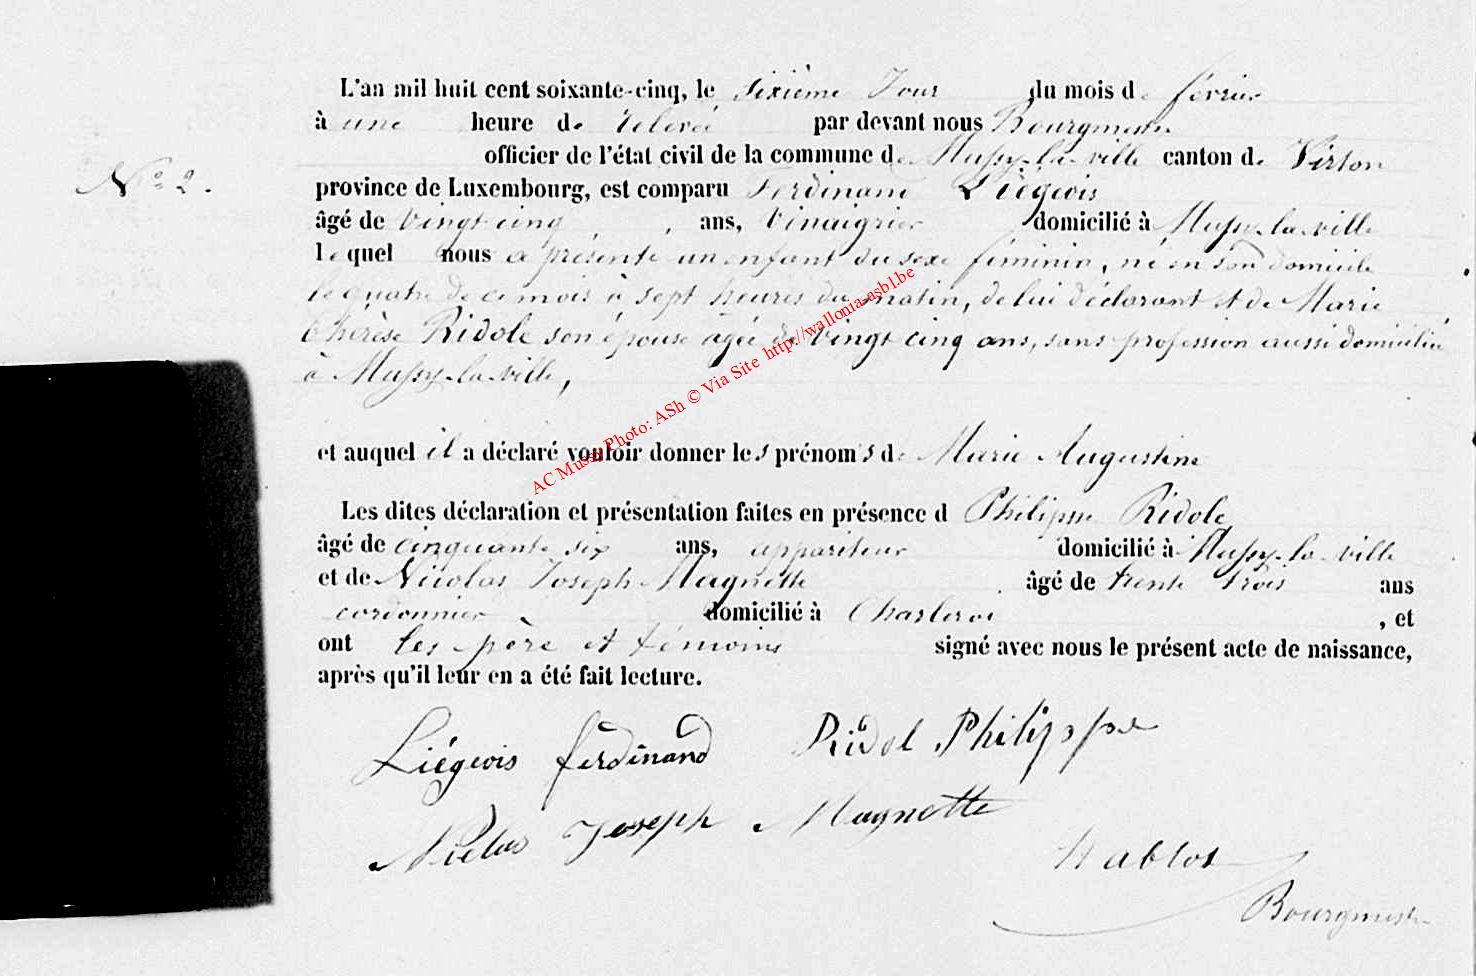 L'an mil huit cent soixante-cinq, le sixième Jour du mois de février
à une heure de relevée par devant nous Bourgmestre
officier de l'état civil de la commune de Mussy-la-ville canton de Virton
N° 2.
province de Luxembourg, est comparu Ferdinand Liégeois
âgé de vingt cinq ans, Vinaigrier domicilié à Mussy-la-ville
lequel nous a présenté un enfant du sexe féminin, né en son domicile
le quatre de ce mois à sept heures du matin, de lui déclarant et de Marie
Thérèse Ridole son épouse âgée de vingt cinq ans, sans profession aussi domiciliée
à Mussy-la-ville,
et auquel il a déclaré vouloir donner les prénoms de Marie Augustine
AC Mussy Photo: ASh © Via Site http://wallonia-asbl.be
Les dites déclaration et présentation faites en présence d Philippe Ridole
âgé de cinquante six ans, appariteur domicilié à Mussy-la-ville
et de Nicolas Joseph Magnette âgé de trente trois ans
cordonnier domicilié à Charleroi , et
ont les père et témoins signé avec nous le présent acte de naissance,
après qu'il leur en a été fait lecture.
Liégeois ferdinand Ridol Philippe
Nicolas Joseph Magnette
Hablot
Bourgmestre